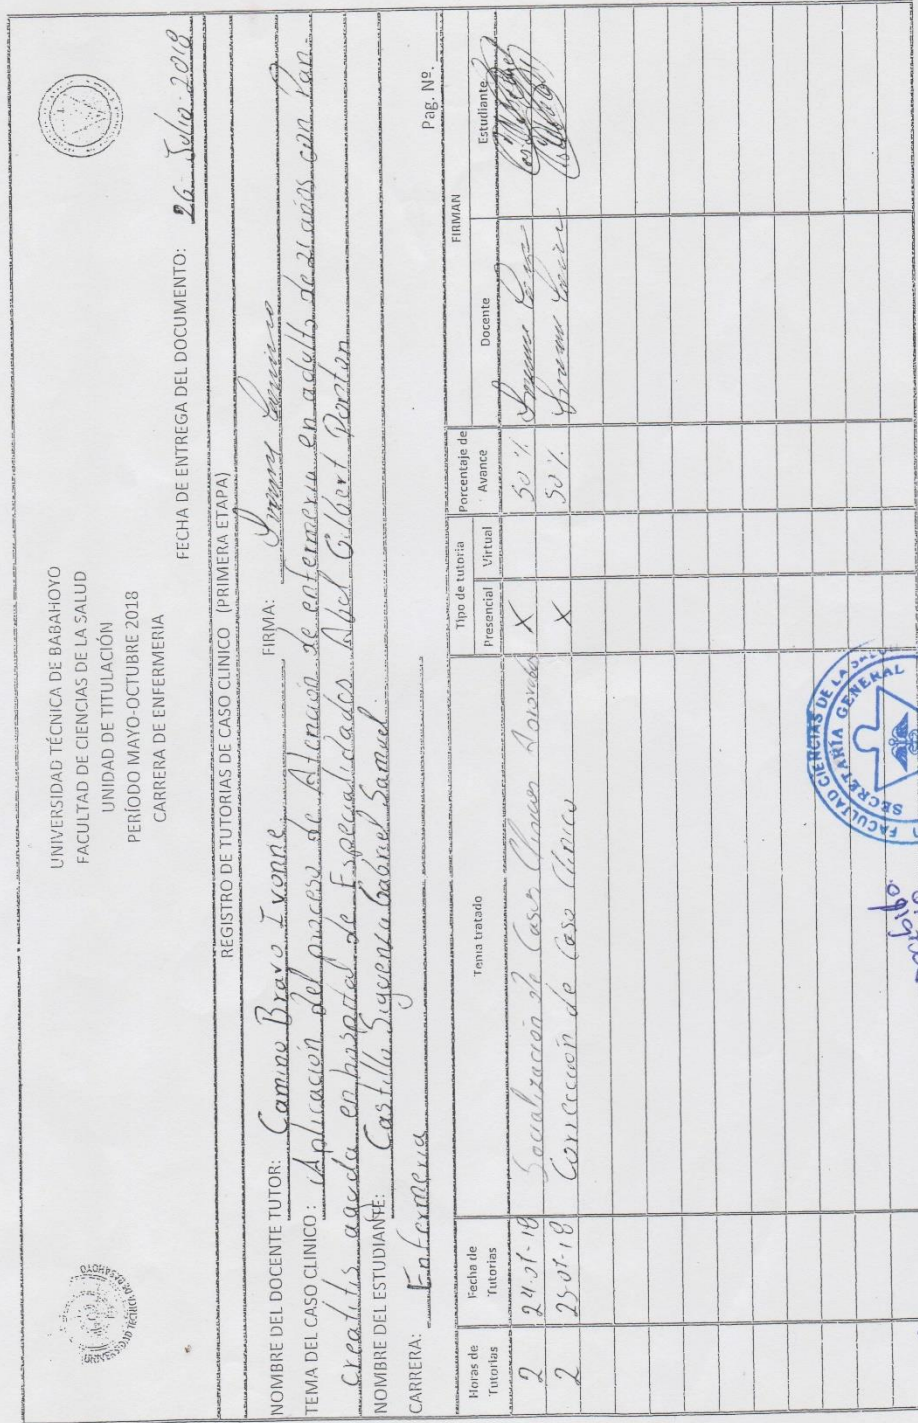 UNIVERSIDAD TÉCNICA DE BABAHOYO
FACULTAD DE CIENCIAS DE LA SALUD
UNIDAD DE TITULACIÓN
PERÍODO MAYO-OCTUBRE 2018
CARRERA DE ENFERMERIA
FECHA DE ENTREGA DEL DOCUMENTO: 26 Julio 2018
REGISTRO DE TUTORIAS DE CASO CLINICO (PRIMERA ETAPA)
NOMBRE DEL DOCENTE TUTOR: Camino Bravo Ivonne FIRMA:
TEMA DEL CASO CLINICO: Aplicación del proceso de Atención de enfermeria en adulto de 21 años con Pan-
creatitis aguda en hospital de Especialidades Abel Gilbert Pontón
NOMBRE DEL ESTUDIANTE: Castillo Siguenza Gabriel Samuel
CARRERA: Enfermeria Pag. Nº.
Horas de Tutorias Fecha de Tutorias Tema tratado Tipo de tutoria Porcentaje de Avance FIRMAN
Presencial Virtual Docente Estudiante
2 24-07-18 Socialización de Casos Clinicos X 50 %
2 25-07-18 Corrección de Caso Clinico X 50 %
FACULTAD CIENCIAS DE LA SALUD
SECRETARÍA GENERAL